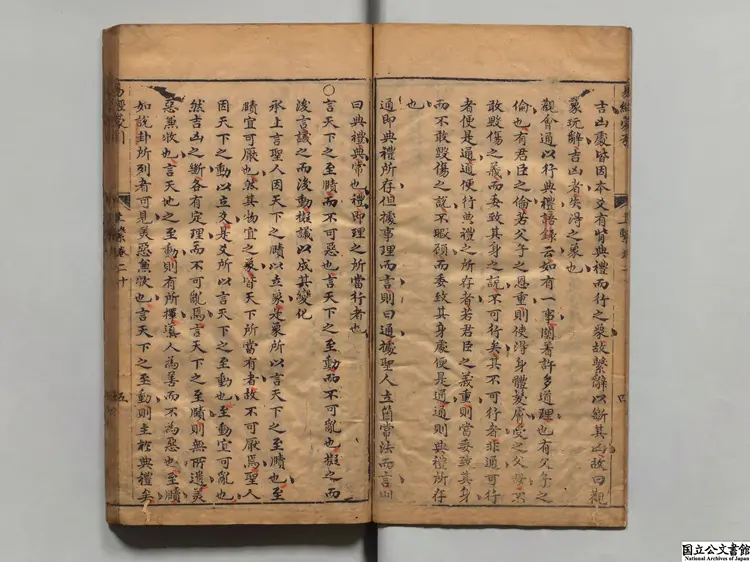 吉凶處皆因本爻有背典禮而行之爻故繫辭以斷其凶故曰觀
象玩辭吉凶者失得之象也
觀會通以行典禮語錄云如有一事關着許多道理也有父子之
倫也有君臣之倫若父子之恩重則使得身體髮膚受之父母不
敢毀傷之義而委致其身之說不可行矣其不可行者非通可行
者便是通通便行典禮之所存者若君臣之義重則當委致其身
而不敢毀傷之說不暇顧而委致其身處便是通通則典禮所存
也
通即典禮所存但據事理而言則曰通據聖人立箇常法而言則
曰典禮典常也禮即理之所當行者也
○言天下之至賾而不可惡也言天下之至動而不可亂也擬之而
後言議之而後動擬議以成其變化
承上言聖人因天下之賾以立象是象所以言天下之至賾也至
賾宜可厭也然其物宜之象皆天下所當有者故不可厭焉聖人
因天下之動以立爻是爻所以言天下之至動也至動宜可亂也
然吉凶之斷各有定理而不可亂焉言天下之至賾則無所遺美
惡兼收也言天地之至動則有所擇進人為善而不為惡也至賾
如說卦所列者可見美惡兼收也言天下之至動則主於典禮矣
易經蒙引
上繫卷二十
五
国立公文書館
National Archives of Japan